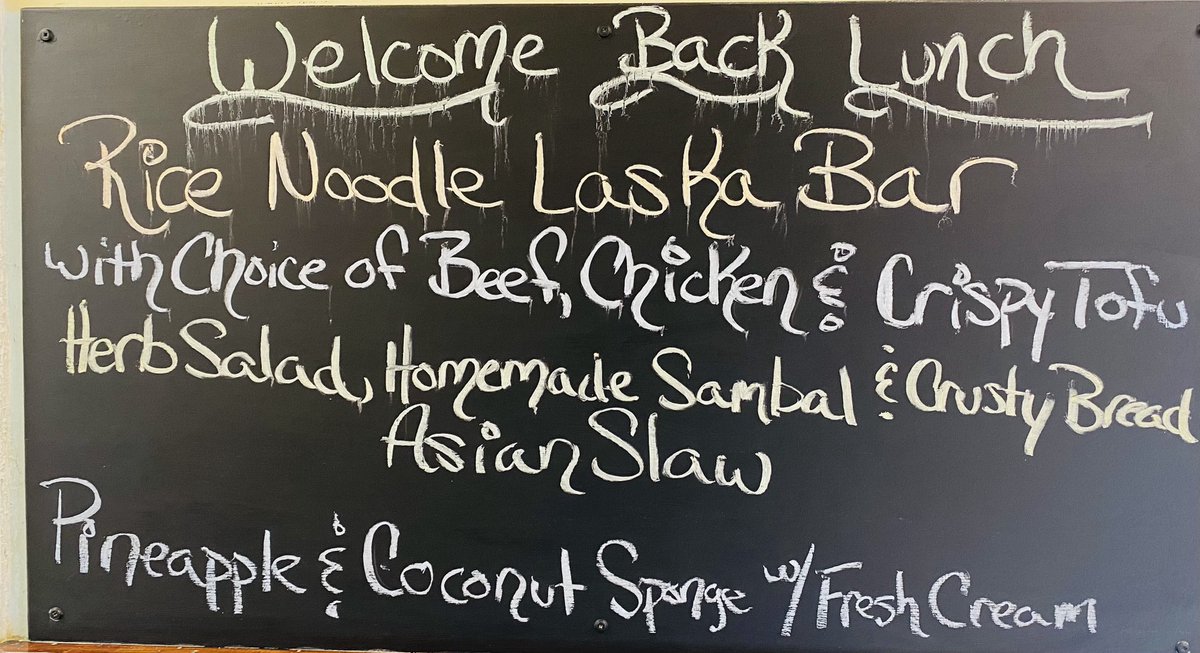 Welcome Back Lunch
Rice Noodle Laska Bar
with Choice of Beef, Chicken & Crispy Tofu
Herb Salad, Homemade Sambal & Crusty Bread
Asian Slaw
Pineapple & Coconut Sponge w/ Fresh Cream